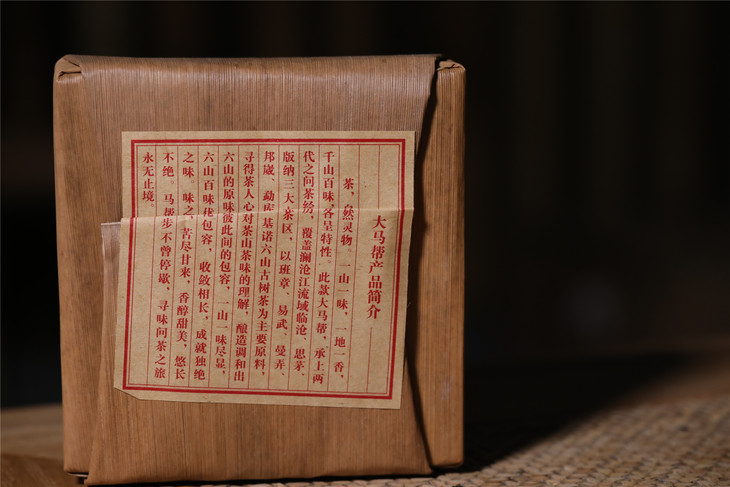 大马帮产品简介
茶，自然灵物。一山一味，一地一香，
千山百味，各呈特性。此款大马帮，承上两
代之问茶纷，覆盖澜沧江流域临沧、思茅、
版纳三大茶区，以班章、易武、曼弄、
邦崴、勐库、基诺六山古树茶为主要原料，
寻得茶人心对茶山茶味的理解，酿造调和出
六山的原味彼此间的包容，一山一味尽显，
六山百味优包容，收敛相长，成就独绝
之味。味之，苦尽甘来，香醇甜美，悠长
不绝。马帮步不曾停歇，寻味问茶之旅
永无止境。